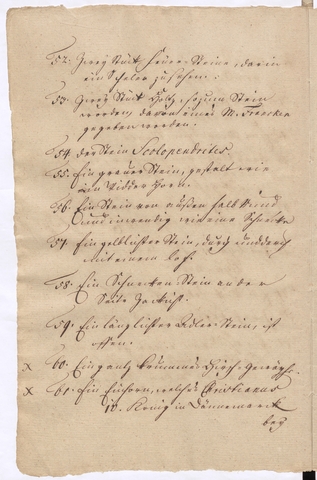 52. Zwey Stück Feuer-Steine, darin
ein Schaler zu sehen.
53. Zwey Stück Holtz, so zum Stein
worden, davon eines M. Francken
gegeben worden.
54. der Stein Scolopendrites.
55. Ein grauer Stein, gestalt wie
ein Widder Horn.
56. Ein Stein von außen halb rund
und inwendig wie eine Schnecke
57. Ein gelblichter Stein, durch und durch
mit einem loch.
58. Ein Schnecken-Stein an der
Seite zackicht.
59. Ein länglichter Adler-Stein, ist
offen.
x 60. Ein gantz krummes Hirsch-Geweyh.
x 61. Ein Einhorn, welches Christianus
IV. König in Dännemarck
bey